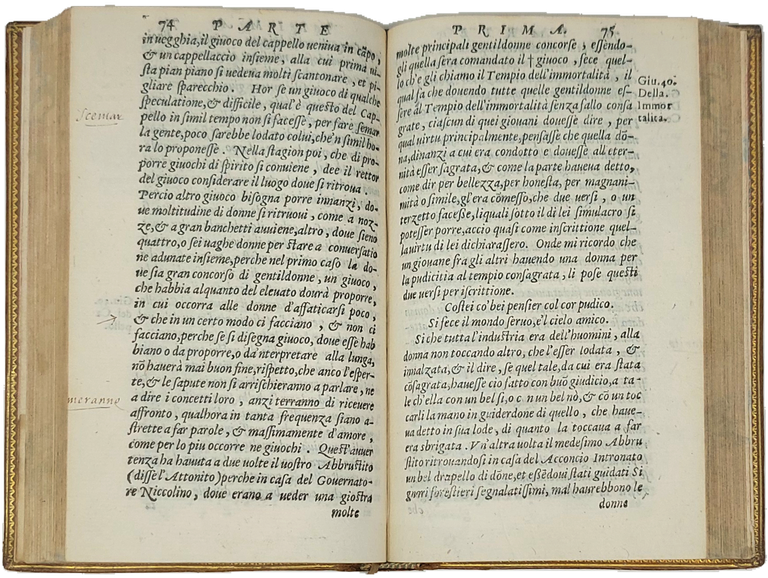 74 PARTE
in uegghia, il giuoco del cappello ueniua in cãpo,
& un cappellaccio insieme, alla cui prima ui-
sta pian piano si uedeua molti scantonare, et pi-
gliare sparecchio. Hor se un giuoco di qualche
speculatione, & difficile, qual'è questo del Cap-
pello in simil tempo non si facesse, per fare semar
la gente, poco sarebbe lodato colui, che'n simil ho-
ra lo proponesse. Nella stagion poi, che di pro-
porre giuochi di spirito si conuiene, dee il rettor
del giuoco considerare il luogo doue si ritroua.
Percio altro giuoco bisogna porre innanzi, do-
ue moltitudine di donne si ritruoui, come a noz-
ze, & a gran banchetti auuiene, altro, doue sieno
quattro, o sei uaghe donne per stare a conuersatio
ne adunate insieme, perche nel primo caso la do-
ue sia gran concorso di gentildonne, un giuoco,
che habbia alquanto del eleuato dourà proporre,
in cui occorra alle donne d'affaticarsi poco,
& che in un certo modo ci facciano, & non ci
facciano, perche se si disegna giuoco, doue esse hab
biano o da proporre, o da'nterpretare alla lunga,
nõ hauerà mai buon fine, rispetto, che anco l'esper-
te, & le sapute non si arrischieranno a parlare, ne
a dire i concetti loro, anzi terranno di riceuere
affronto, qualhora in tanta frequenza siano a-
strette a far parole, & massimamente d'amore,
come per lo piu occorre ne giuochi. Quest'auuer
tenza ha hauuta a due uolte il uostro Abbrustito
(disse l'Attonito) perche in casa del Gouernato-
re Niccolino, doue erano a ueder una giostra
molte
Scemar
meranno
PRIMA. 75
molte principali gentildonne concorse, essendo-
gli quella sera comandato il † giuoco, fece quel-
lo ch'e gli chiamo il Tempio dell'immortalità, il
qual fa che douendo tutte quelle gentildonne es-
sere al Tempio dell'immortalità senza fallo consa
grate, ciascun di quei giouani douesse dire, per
qual uirtu principalmente, pensasse che quella dõ-
na, dinanzi a cui era condotto e douesse all eter-
nità esser sagrata, & come la parte haueua detto,
come dir per bellezza, per honestà, per magnani-
mità o simile, gl'era cõmesso, che due uersi, o un
terzetto facesse, li quali sotto il di lei simulacro si
potesser porre, accio quasi come inscrittione quel-
la uirtu di lei dichiarassero. Onde mi ricordo che
un giouane fra gli altri hauendo una donna per
la pudicitia al tempio consagrata, li pose questi
due uersi per iscrittione.
Costei co'bei pensier col cor pudico.
Si fece il mondo seruo, e'l cielo amico.
Si che tutta l'industria era dell'huomini, alla
donna non toccando altro, che l'esser lodata, &
innalzata, & il dire, se quel tale, da cui era stata
cõsagrata, hauesse cio fatto con buõ giudicio, a ta-
le ch'ella con un bel si, o c n un bel nò, & cõ un toc
carli la mano in guiderdone di quello, che haue-
ua detto in sua lode, di quanto la toccaua a far
era sbrigata. Vn'altra uolta il medesimo Abbru
stito ritrouandosi in casa del Acconcio Intronato
un bel drapello di dõne, et essẽdoui stati guidati Si
gnori forestieri segnalatissimi, mal haurebbono le
donne
Giu. 40.
Della.
Immor
talita.